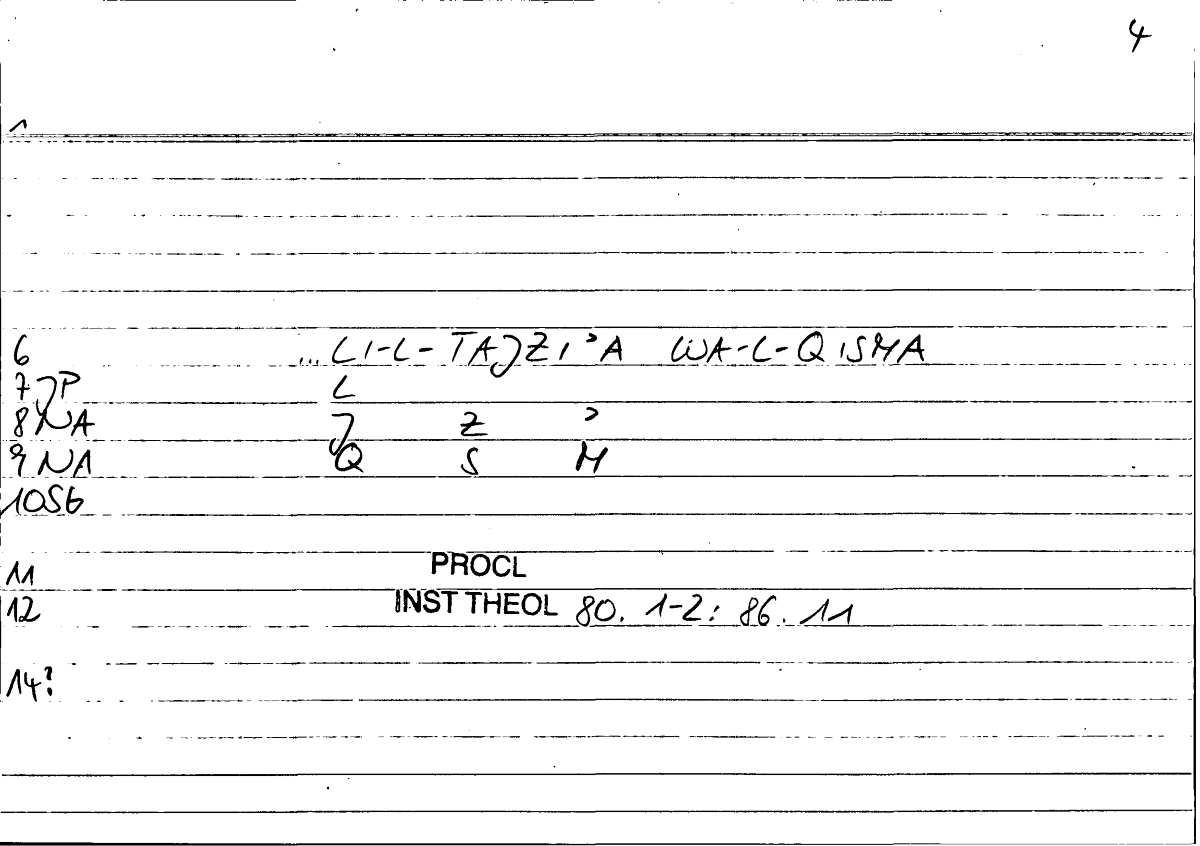 4
1
6 ... LI-L-TAJZIʾA WA-L-QISMA
7 JP L
8 NA J Z ʾ
9 NA Q S M
10 SG
11 PROCL
12 INST THEOL 80. 1-2: 86. 11
14?